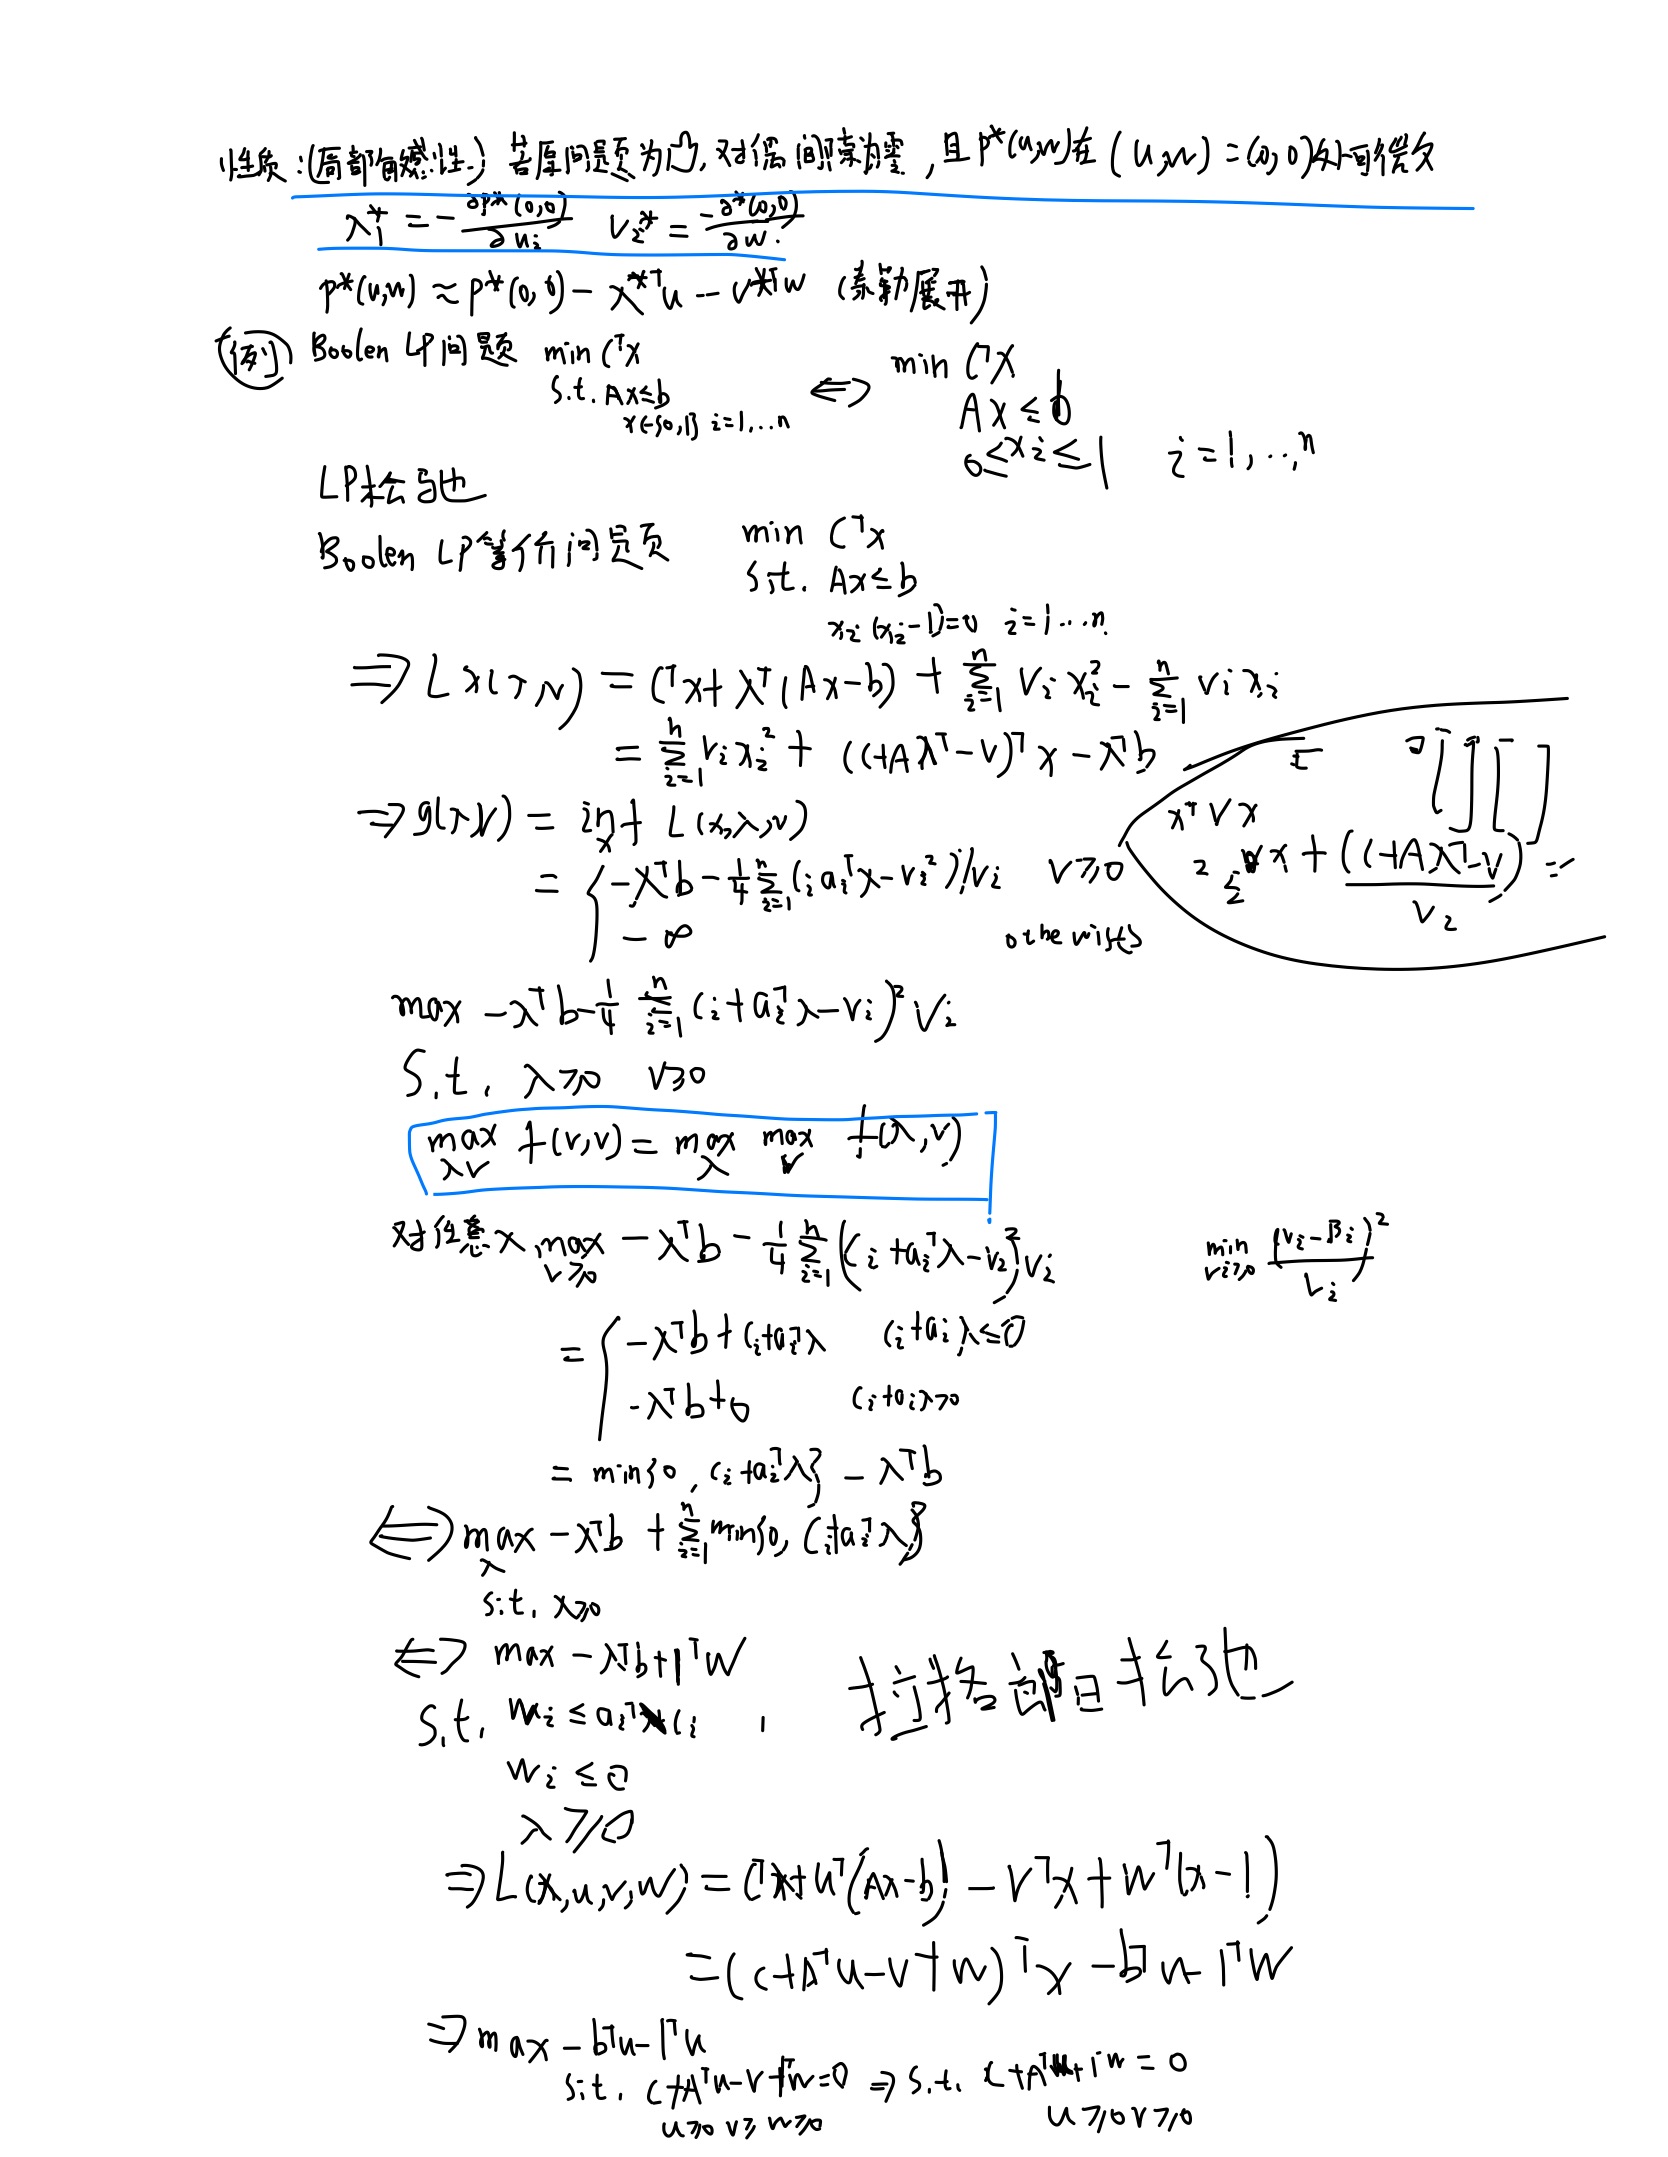 性质:(局部敏感性) 若原问题为凸,对偶间隙为零,且 p*(u,w)在 (u,w)=(0,0)处可微则
λ₁* = -∂p*(0,0)/∂uᵢ  vᵢ* = -∂*(0,0)/∂w.
p*(u,w) ≈ p*(0,0) - λ*ᵀu - v*ᵀw (泰勒展开)
例 Boolen LP问题 min Cᵀx ⟺ min CᵀX
s.t. Ax≤b  Ax≤b
x∈{0,1} i=1,...n  0≤xᵢ≤1 i=1,..,n
LP松弛
Boolen LP等价问题 min Cᵀx
s.t. Ax≤b
xᵢ(xᵢ-1)=0 i=1...n
= Cᵀx+λᵀ(Ax-b) + Σᵢ₌₁ⁿ vᵢxᵢ² - Σᵢ₌₁ⁿ vᵢxᵢ
= Σᵢ₌₁ⁿ vᵢxᵢ² + (C+Aλᵀ-v)ᵀx - λᵀb
xᵀVx
⇒ g(λ,v) = inf_x L(x,λ,v)
= { -λᵀb - 1/4 Σᵢ₌₁ⁿ (cᵢ aᵢᵀx - vᵢ²)/vᵢ  v≥0
-∞
max -λᵀb - 1/4 Σᵢ₌₁ⁿ (cᵢ+aᵢᵀλ-vᵢ)² vᵢ
s.t. λ≥0 v≥0
max_{λv} f(v,v) = max_λ max_v f(λ,v)
对任意λ max_{v≥0} -λᵀb - 1/4 Σᵢ₌₁ⁿ (cᵢ+aᵢᵀλ-vᵢ)² vᵢ  min_{vᵢ≥0} (vᵢ-βᵢ)²/vᵢ
= { -λᵀb + cᵢ+aᵢᵀλ  cᵢ+aᵢλ≤0
-λᵀb+0  cᵢ+aᵢλ>0
= min{0, cᵢ+aᵢᵀλ} - λᵀb
⟺ max_λ -λᵀb + Σᵢ₌₁ⁿ min{0, cᵢ+aᵢᵀλ}
s.t. λ≥0
⟺ max -λᵀb+1ᵀW
s.t. wᵢ ≤ aᵢᵀλ+cᵢ  拉格朗日松弛
wᵢ≤0
λ≥0
⇒ L(x,u,v,w) = Cᵀx+uᵀ(Ax-b) - vᵀx + wᵀ(x-1)
= (c+Aᵀu-v+w)ᵀx - bᵀu-1ᵀw
⇒ max -bᵀu-1ᵀu
s.t. c+Aᵀu-v+w=0 ⇒ s.t. = 0
u≥0 v≥ w≥0  u≥0 v≥0